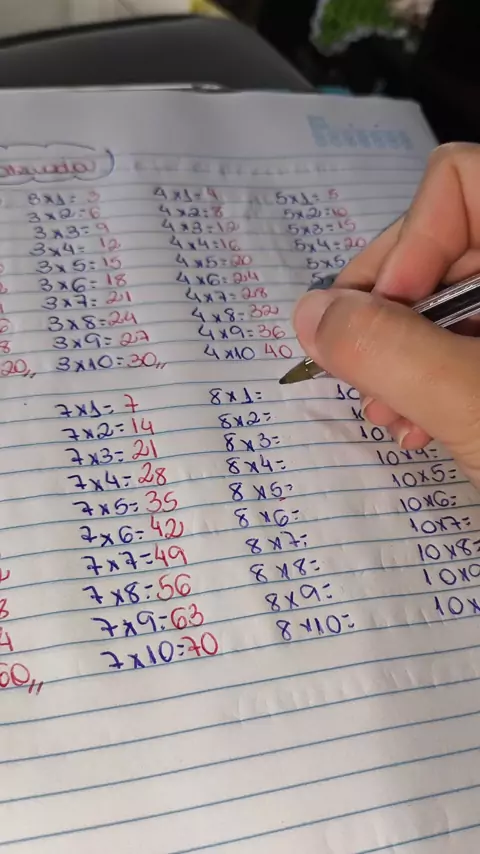 3x1=3 4x1=4 5x1=5
3x2=6 4x2=8 5x2=10
3x3=9 4x3=12 5x3=15
3x4=12 4x4=16 5x4=20
3x5=15 4x5=20 5x5
3x6=18 4x6=24
3x7=21 4x7=28
3x8=24 4x8=32
3x9=27 4x9=36
20,, 3x10=30,, 4x10 40
7x1=7 8x1= 10
7x2=14 8x2=
7x3=21 8x3= 10
7x4=28 8x4= 10x4=
7x5=35 8x5= 10x5=
7x6=42 8x6= 10x6=
7x7=49 8x7= 10x7=
7x8=56 8x8= 10x8=
7x9=63 8x9= 10x9
60,, 7x10=70 8x10= 10x